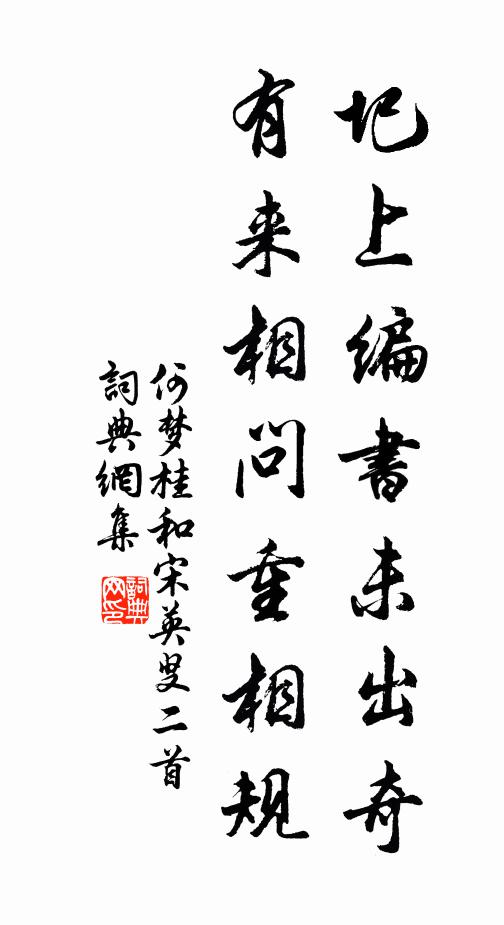 圯上编書未出奇
有来相问重相规
何梦桂和宋英叟二首
詞典網集